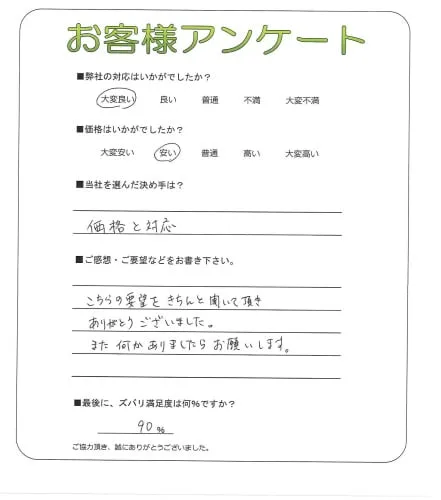 お客様アンケート
■弊社の対応はいかがでしたか？
大変良い 良い 普通 不満 大変不満
■価格はいかがでしたか？
大変安い 安い 普通 高い 大変高い
■当社を選んだ決め手は？
価格と対応
■ご感想・ご要望などをお書き下さい。
こちらの要望をきちんと聞いて頂き
ありがとうございました。
また何かありましたらお願いします。
■最後に、ズバリ満足度は何%ですか？
90%
ご協力頂き、誠にありがとうございました。